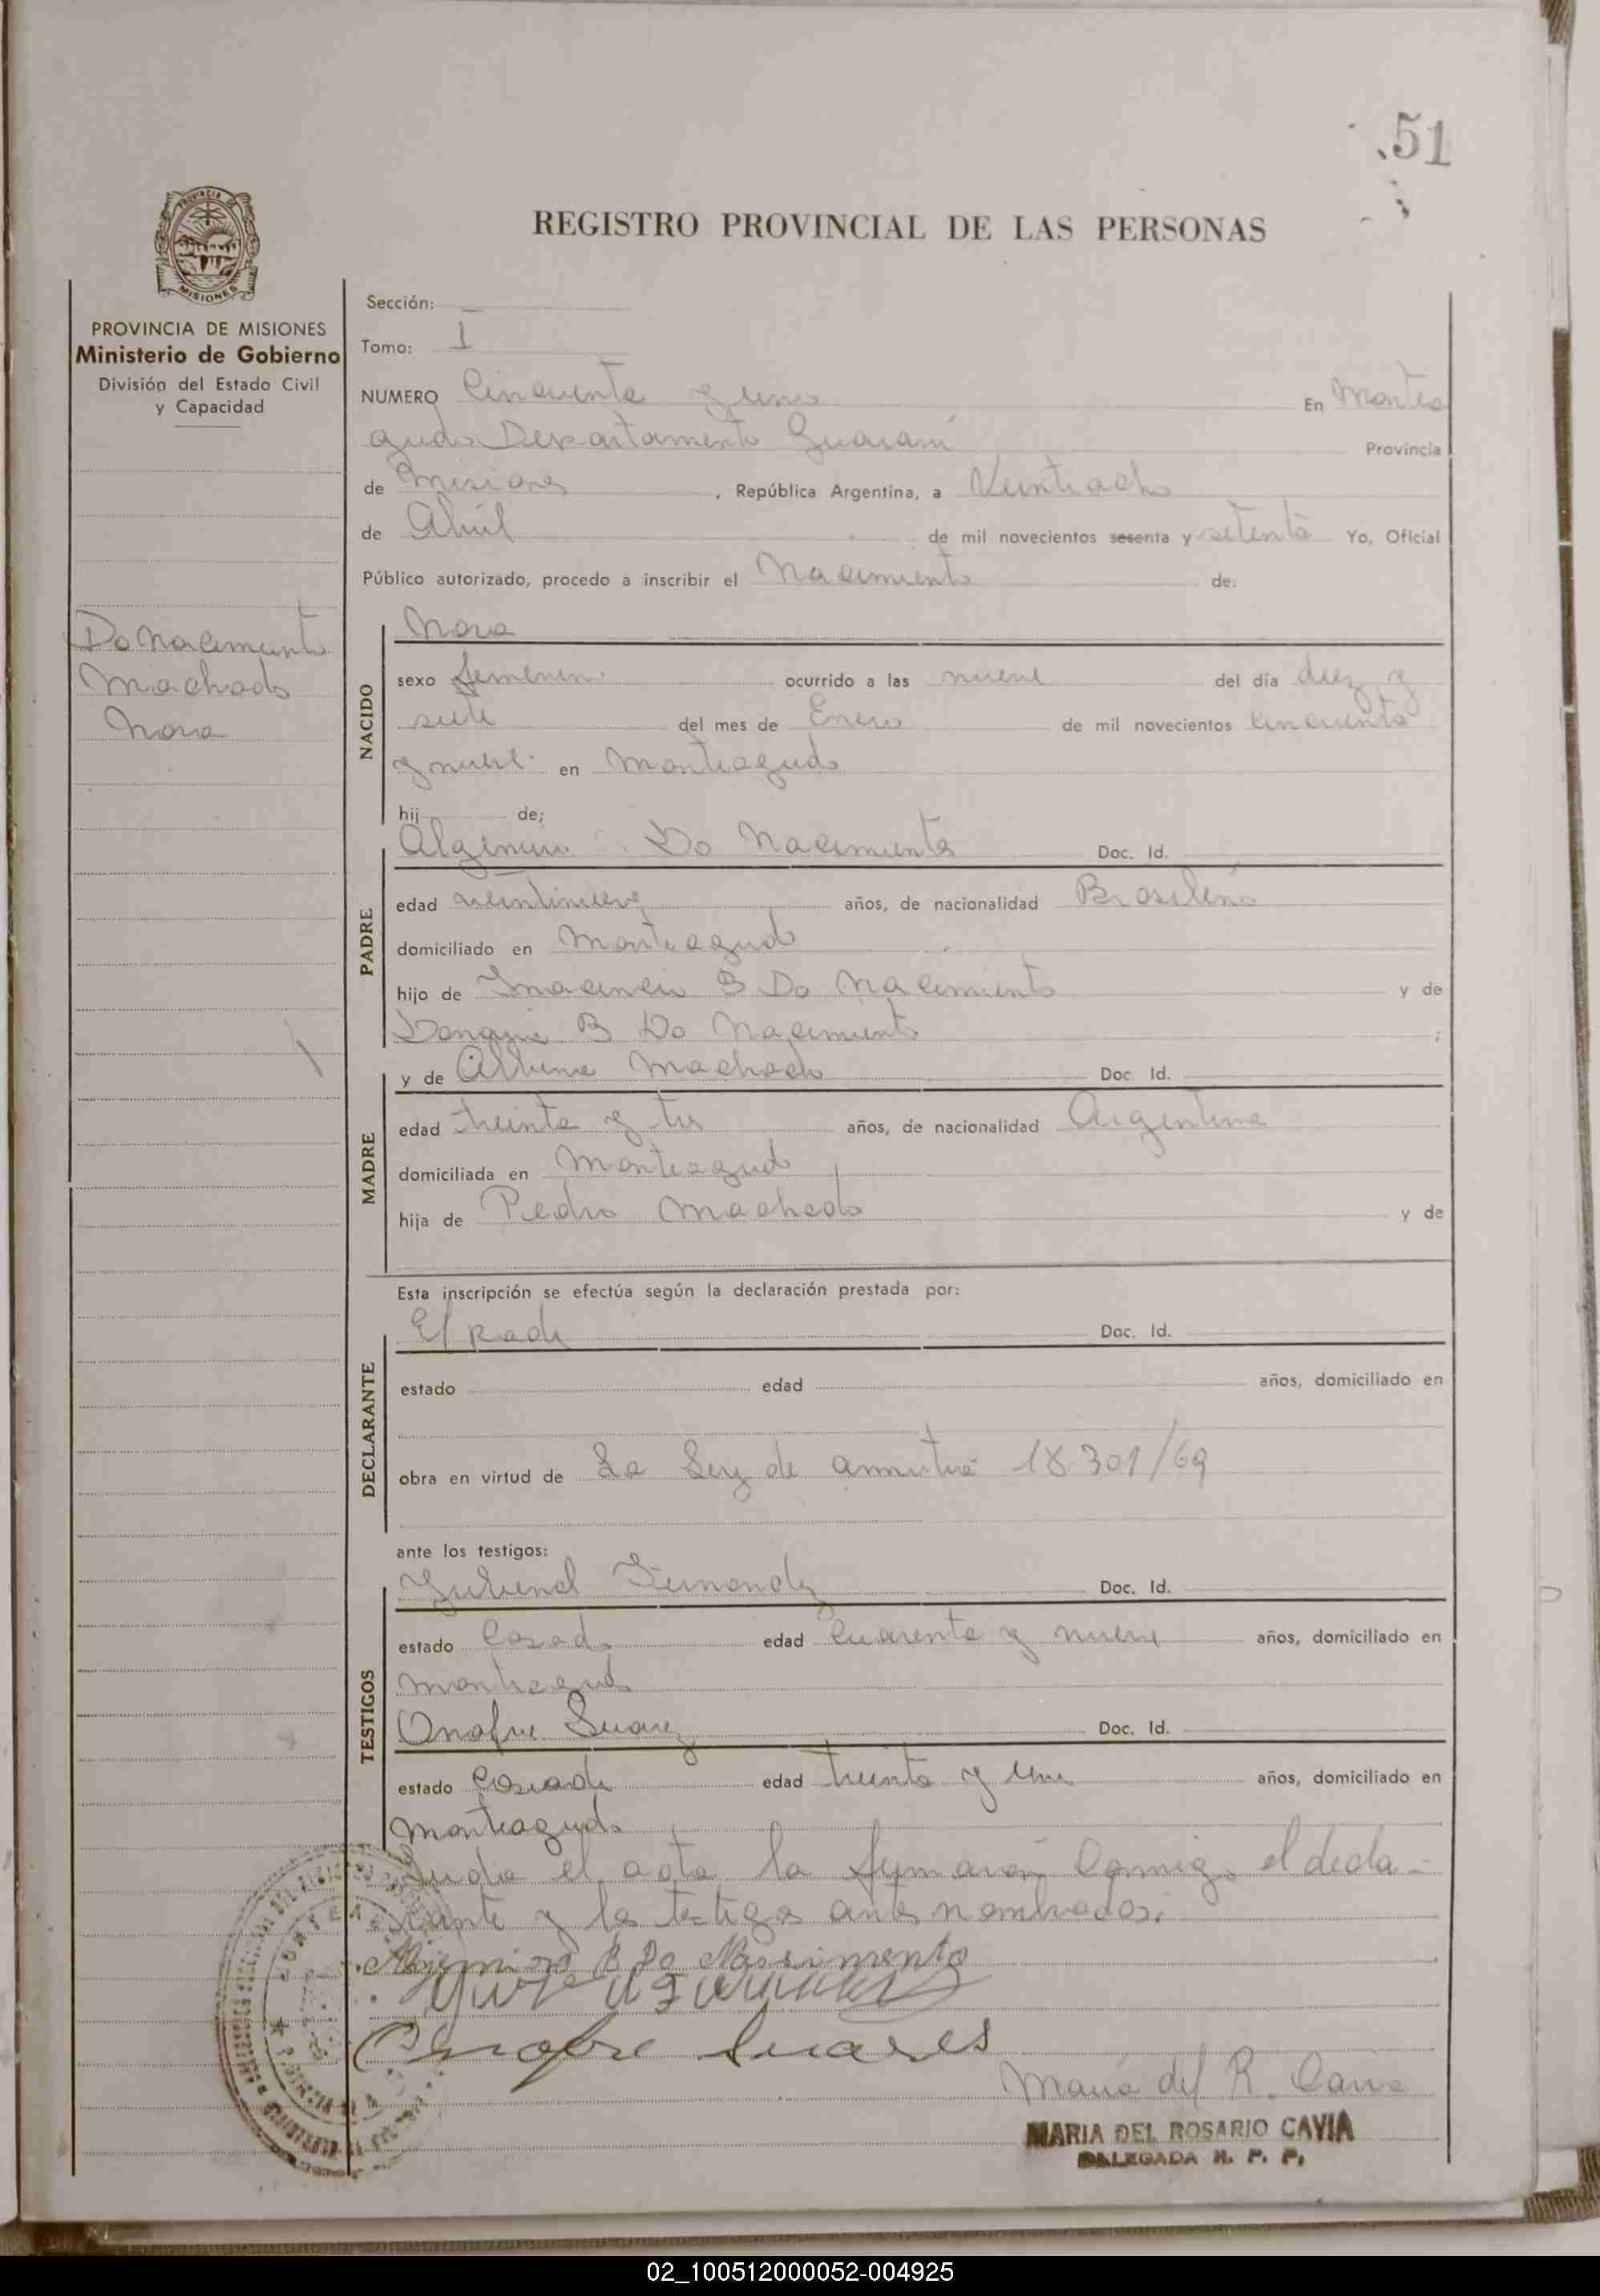 51
REGISTRO PROVINCIAL DE LAS PERSONAS
PROVINCIA DE
MISIONES
PROVINCIA DE MISIONES
Ministerio de Gobierno
División del Estado Civil
y Capacidad
Do Nacimento
Machado
Nora
Sección:
Tomo: I
NUMERO Cincuenta y uno En Montea
gudo Departamento Guaraní Provincia
de Misiones, República Argentina, a Veintiocho
de Abril de mil novecientos sesenta y setenta Yo, Oficial
Público autorizado, procedo a inscribir el Nacimiento de:
NACIDO
Nora
sexo femenino ocurrido a las nueve del día diez y
siete del mes de Enero de mil novecientos cincuenta
y nueve en Monteagudo
hij de;
PADRE
Do Nacimento Doc. Id.
edad años, de nacionalidad Brasileño
domiciliado en Monteagudo
hijo de B Do Nacimiento y de
B Do Nacimento ;
MADRE
y de Albina Machado Doc. Id.
edad treinta y tres años, de nacionalidad Argentina
domiciliada en Monteagudo
hija de Pedro Machado y de
Esta inscripción se efectúa según la declaración prestada por:
DECLARANTE
El Padre Doc. Id.
estado edad años, domiciliado en
obra en virtud de La Ley de amnistía 18.301/69
ante los testigos:
TESTIGOS
Doc. Id.
estado Casado edad Cuarenta y nueve años, domiciliado en
Monteagudo
Onofre Suarez Doc. Id.
estado Casado edad treinta y uno años, domiciliado en
Monteagudo
el acta la firmaron Conmigo el decla-
rante y los testigos antes nombrados.
B Do Nassimento
Onofre Suares
María del R. Cavia
MARIA DEL ROSARIO CAVIA
DELEGADA R. P. P.
02_100512000052-004925